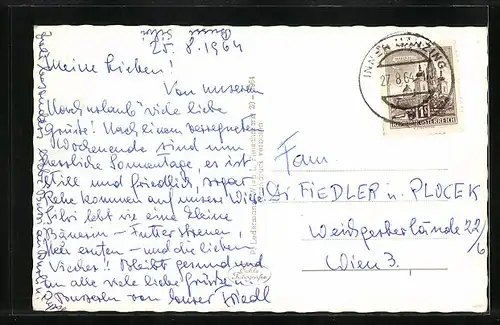 25.8.1964
Meine Lieben!
Von unserem
"Nachurlaub" viele liebe
Grüße! Nach einem verregneten
Wochenende sind nun
herrliche Sonnentage, es ist
still und friedlich, sogar
Rehe kommen auf unsere Wiese.
Silvi lebt wie eine kleine
Bäuerin – Futter streuen,
Heu ernten – und die lieben
Viecher! Bleibt gesund und
an alle viele liebe Grüße u.
Busserln von Eurer Friedl
Bussi
Silvi
INNER MANZING
27.8.64
REPUBLIK ÖSTERREICH
Fam.
FIEDLER u. PLOCEK
Weißgerberlände 22/6
Wien 3.